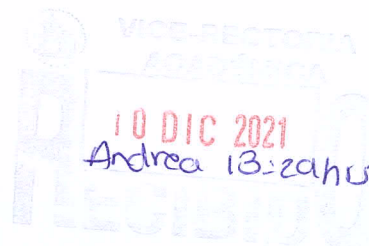 VICE-RECTORIA
ACADÉMICA
10 DIC 2021
Andrea 13:20hrs
RECIBIDO